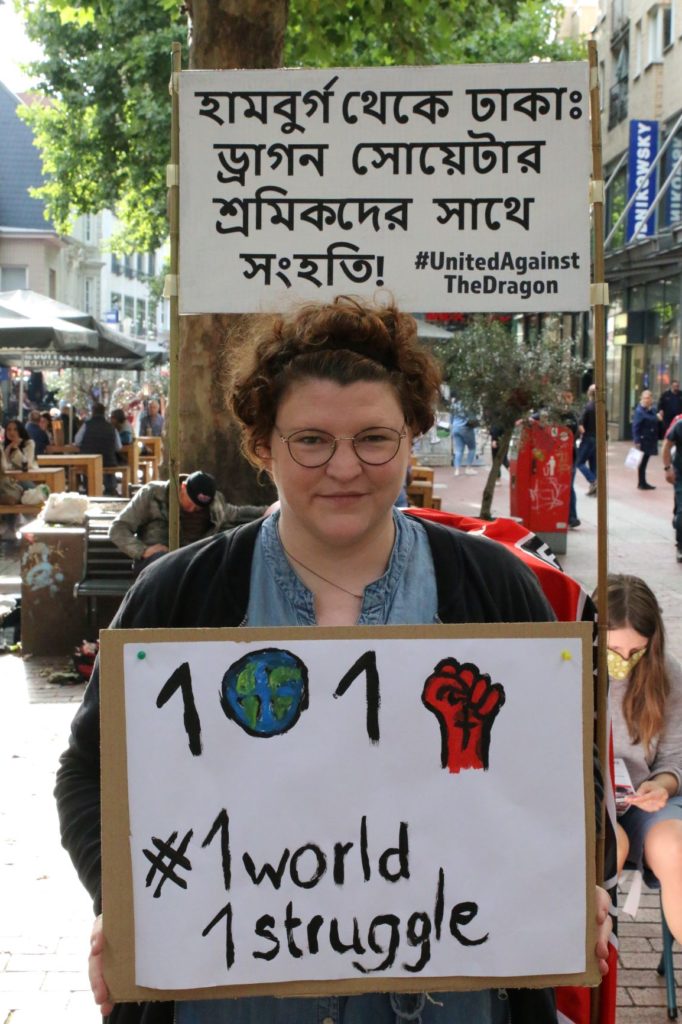 হামবুর্গ থেকে ঢাকাঃ
ড্রাগন সোয়েটার
শ্রমিকদের সাথে
সংহতি!
#UnitedAgainst
TheDragon
NIKOWSKY
1 1
#1world
1struggle